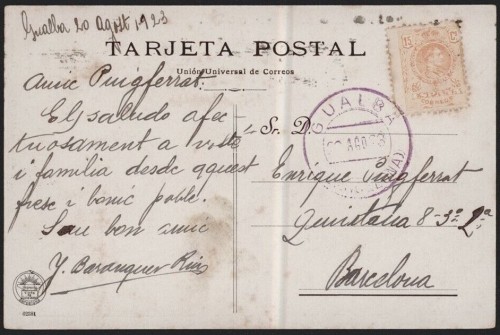 Gualba 20 Agost 1923
TARJETA POSTAL
Unión Universal de Correos
15 Cs
GUALBA
Amic Puigferrat
El saludo afec
tuosament a vosté
i familia desde aquest
fresc i bonic poble.
Sr. D.
Enrique Puigferrat
Quintana 8-3º 2ª
Barcelona
Seu bon amic
J. Baranguer